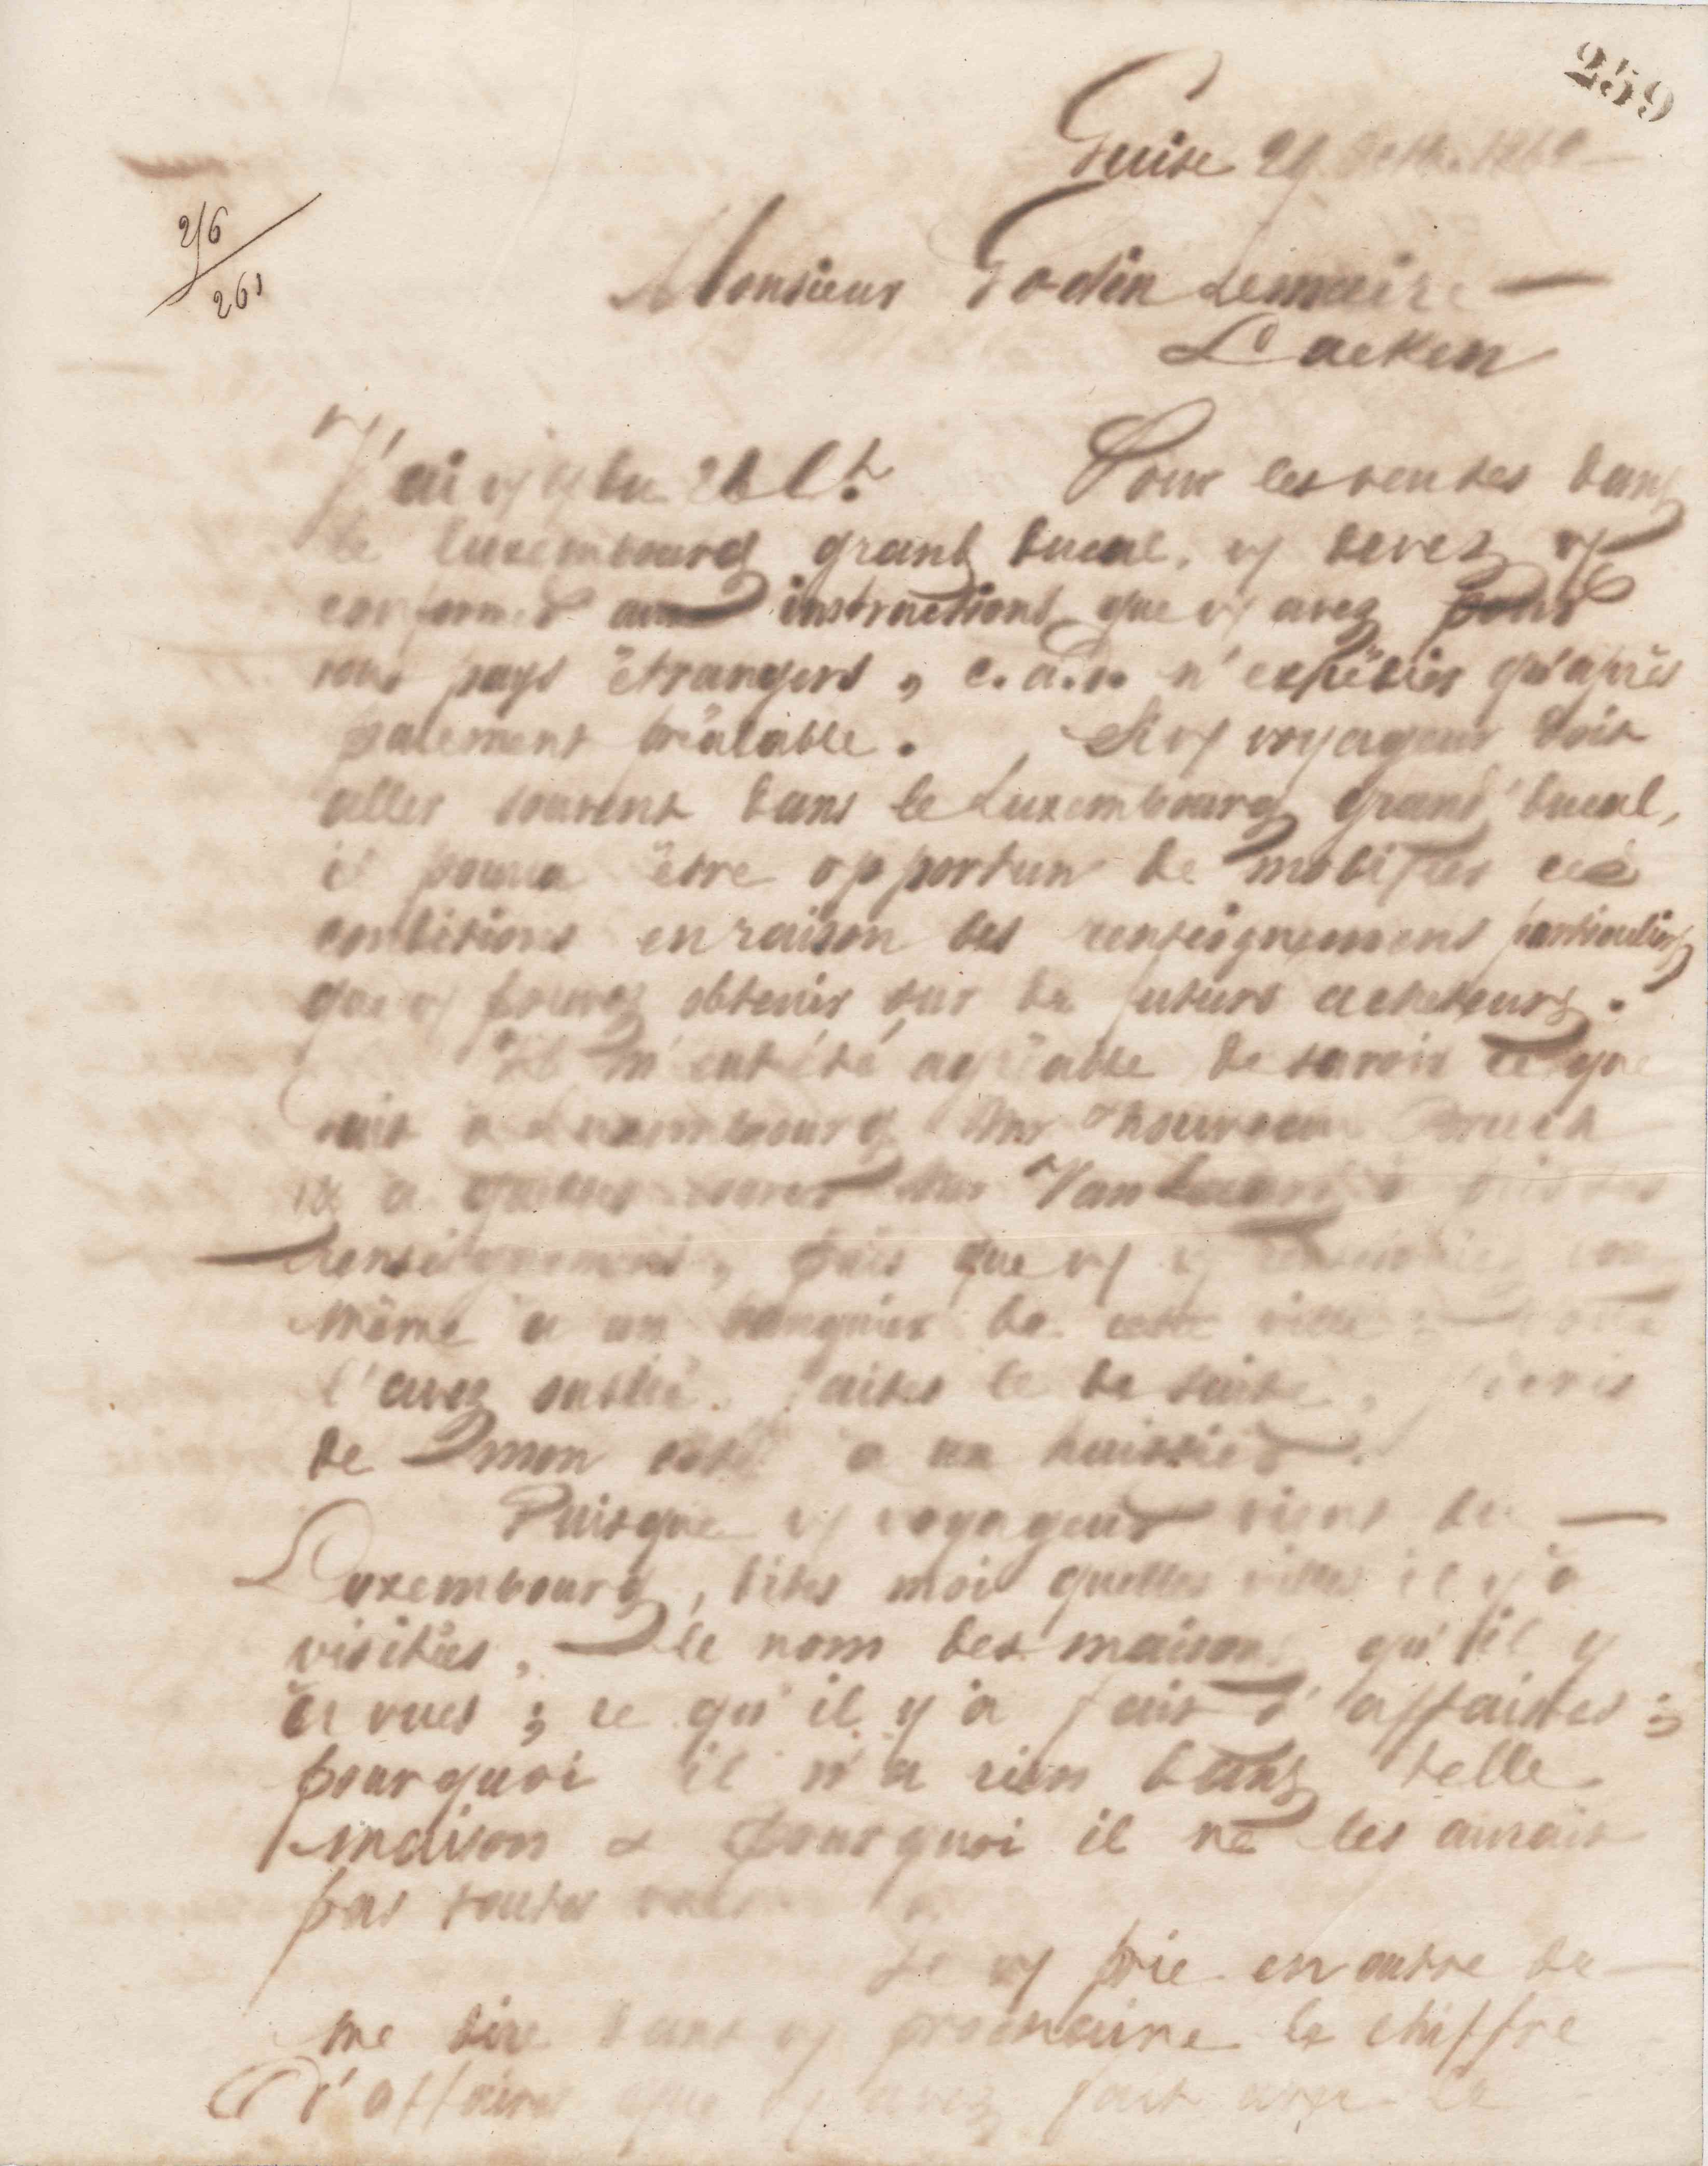 259
Guise 29
216
261
Monsieur Godin Lemaire
Laeken
J'ai vs Pour les ventes dans
le Luxembourg grand ducal, vs devez vs
conformer aux instructions que vs avez pour
pays étrangers, c. a. d. n'expédier qu'après
paiement préalable. Si vs voyageur doit
aller souvent dans le Luxembourg grand ducal,
il pourra être opportun de modifier ces
conditions en raison des renseignements particuliers
que vs pouvez obtenir sur de futurs acheteurs.
Il m'eut été agréable de savoir ce que
fait à Luxembourg Mr
a Mr Van
renseignements, que vs
même a un banquier de cette
l'avez oublié faites le de suite, j'écris
de mon coté a un huissier.
Puisque vs voyageur vient du
Luxembourg, dites moi quelles villes il y a
visitées, le nom des maisons qu'il y
a vues ; ce qu'il y a fait d'affaires ;
pourquoi il n'a rien dans telle
maison & pourquoi il ne les aurait
pas toutes vues
Je vs prie en outre de
me dire dans vs prochaine le chiffre
d'affaires que vs avez fait avec le